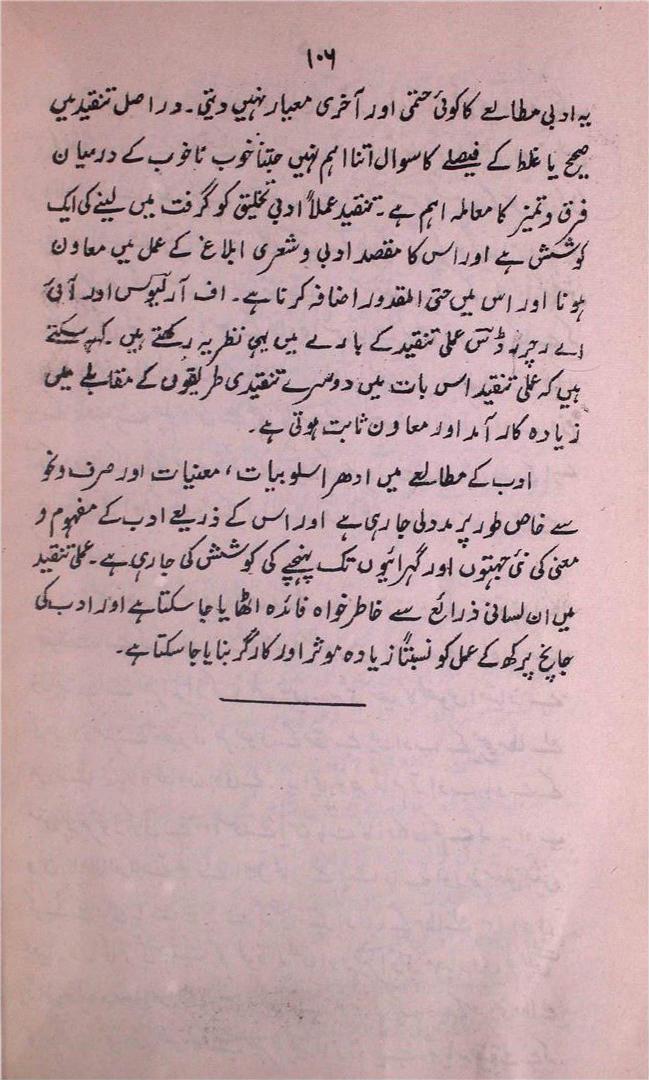 ۱۰۶
یہ ادبی مطالعے کا کوئی حتمی اور آخری معیار نہیں دیتی۔ در اصل تنقید میں
صحیح یا غلط کے فیصلے کا سوال اتنا اہم نہیں جتنا خوب نا خوب کے درمیان
فرق و تمیز کا معاملہ اہم ہے۔ تنقید عملاً ادبی تخلیق کو گرفت میں لینے کی ایک
کوشش ہے اور اس کا مقصد ادبی و شعری ابلاغ کے عمل میں معاون
ہونا اور اس میں حتی المقدور اضافہ کرنا ہے۔ اف آر لیوس اور آئی
اے رچرڈس عملی تنقید کے بارے میں یہی نظریہ رکھتے ہیں۔ کہہ سکتے
ہیں کہ عملی تنقید اس بات میں دوسرے تنقیدی طریقوں کے مقابلے میں
زیادہ کار آمد اور معاون ثابت ہوتی ہے۔
ادب کے مطالعے میں ادھر اسلوبیات، معنیات اور صرف و نحو
سے خاص طور پر مدد لی جا رہی ہے اور اس کے ذریعے ادب کے مفہوم و
معنی کی نئی جہتوں اور گہرائیوں تک پہنچنے کی کوشش کی جا رہی ہے۔ عملی تنقید
میں ان لسانی ذرائع سے خاطر خواہ فائدہ اٹھایا جا سکتا ہے اور ادب کی
جانچ پرکھ کے عمل کو نسبتاً زیادہ موثر اور کارگر بنایا جا سکتا ہے۔